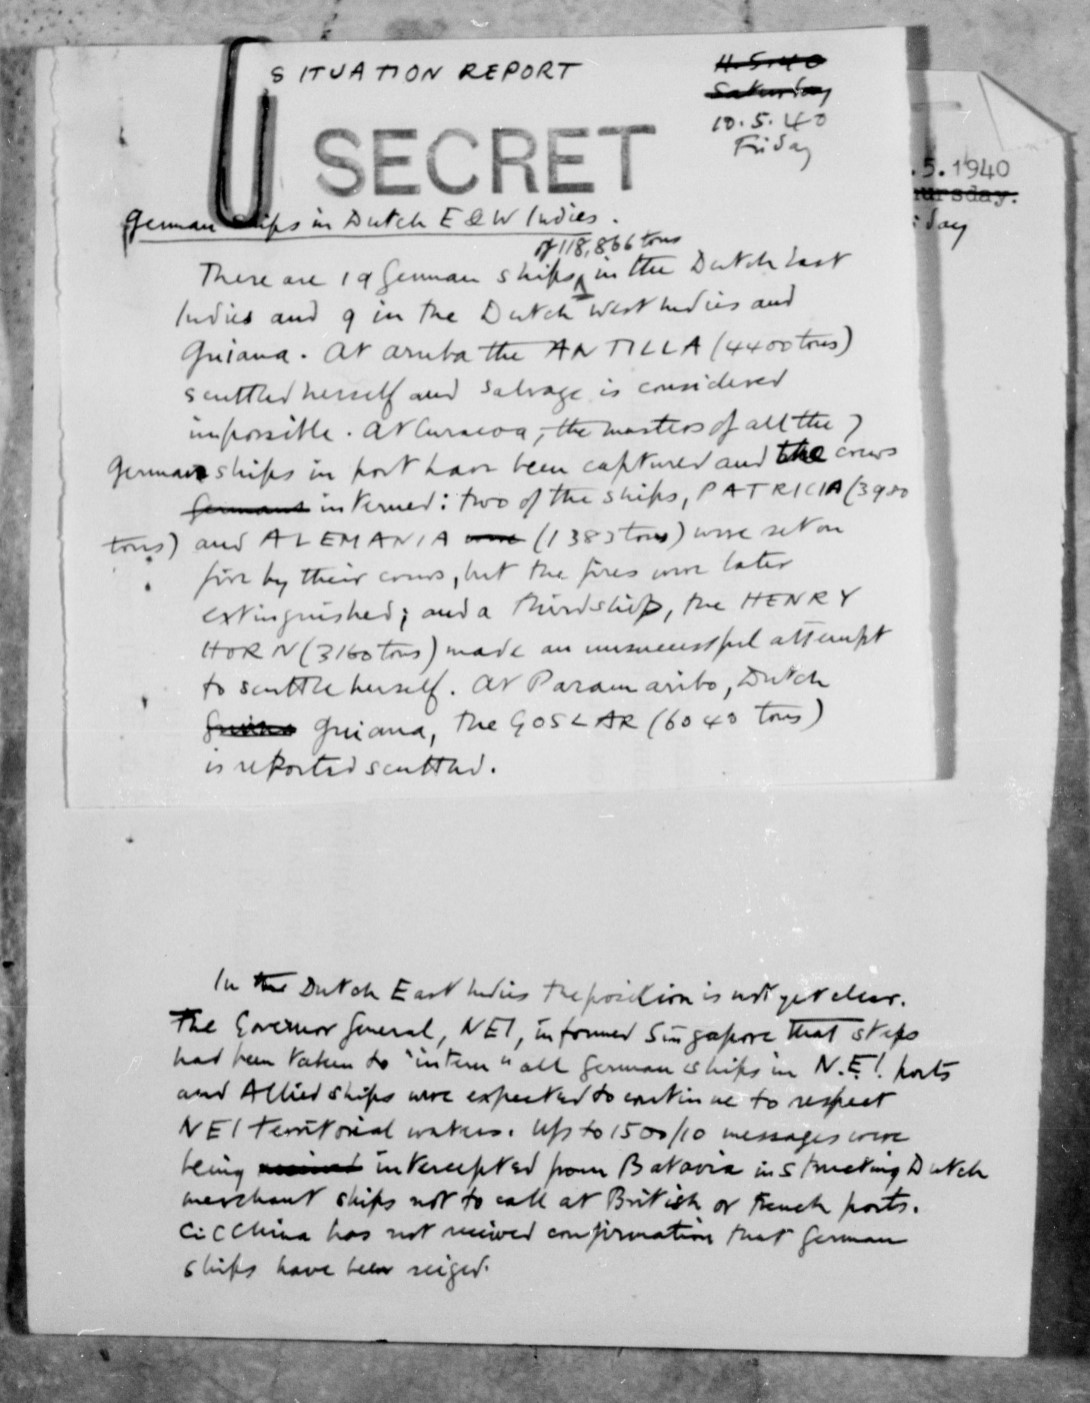 SITUATION REPORT
11.5.40
Saturday
10.5.40
Friday
SECRET
.5.1940
ursday.
day
German ships in Dutch E & W Indies.
of 118,866 tons
There are 19 German ships in the Dutch East
Indies and 9 in the Dutch West Indies and
Guiana. At Aruba the ANTILLA (4400 tons)
scuttled herself and salvage is considered
impossible. At Curacoa, the masters of all the 7
German ships in port have been captured and the crews
Germans interned: two of the ships, PATRICIA (3980
tons) and ALEMANIA were (1383 tons) were set on
fire by their crews, but the fires were later
extinguished; and a third ship, the HENRY
HORN (3160 tons) made an unsuccessful attempt
to scuttle herself. At Paramaribo, Dutch
Guiana, the GOSLAR (6040 tons)
is reported scuttled.
In the Dutch East Indies the position is not yet clear.
The Governor General, NEI, informed Singapore that steps
had been taken to "intern" all German ships in N.E.I. ports
and Allied ships were expected to continue to respect
NEI territorial waters. Up to 1500/10 messages were
being received intercepted from Batavia instructing Dutch
merchant ships not to call at British or French ports.
C:C China has not received confirmation that German
ships have been seized.